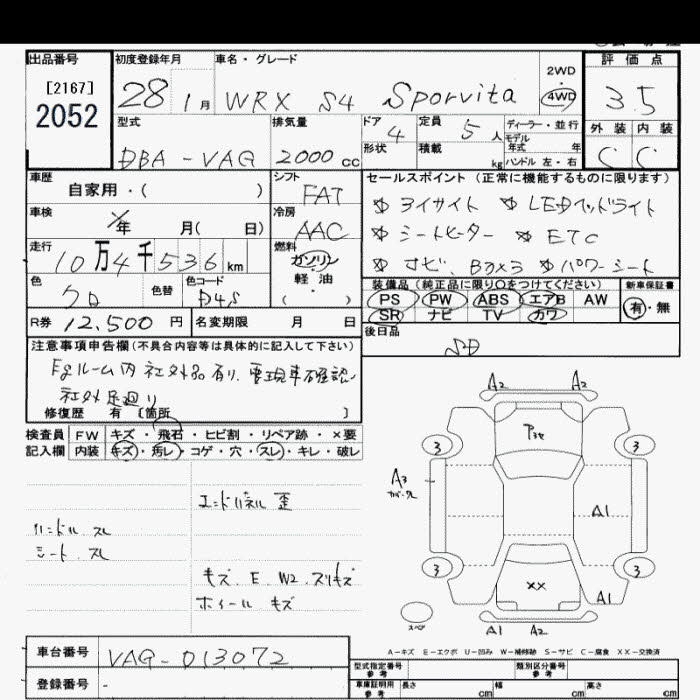 出品番号 初度登録年月 車名・グレード 評価点
[2167]
2052
28 1月 WRX S4 Sporvita 2WD・4WD 3.5
型式 排気量 ドア 定員 ディーラー・並行 外装 内装
DBA-VAG 2000cc 4 5人 モデル年式 年 C C
形状 積載 kg ハンドル 左・右
車歴 シフト セールスポイント(正常に機能するものに限ります)
自家用・( ) FAT
☆アイサイト ☆LEDヘッドライト
車検 年 月( 日) 冷房 AAC
☆シートヒーター ☆ETC
走行 10万4千536km 燃料 ガソリン・軽油・( )
☆ナビ、Bカメラ ☆パワーシート
色 クロ 色替 色コード D4S
装備品(純正品に限り○をつけてください) 新車保証書
PS PW ABS エアB AW 有・無
SR ナビ TV カワ
R券 12,500円 名変期限 月 日
後日品
SD
注意事項申告欄(不具合内容等は具体的に記入して下さい)
Egルーム内社外品有り、要現車確認
社外足廻り
修復歴 有 〔箇所 〕
検査員 FW キズ・飛石・ヒビ割・リペア跡・×要
記入欄 内装 キズ・汚レ・コゲ・穴・スレ・キレ・破レ
エンドパネル 歪
ハンドル スレ
シート スレ
キズ、E、W2、スリキズ
ホイール キズ
A2 A2
P3e
3 3
A3
A1
3 3
XX
A1
スペア
A1 A2
A-キズ E-エクボ U-凹み W-補修跡 S-サビ C-腐食 XX-交換済
車台番号 VAG-013072
型式指定番号 参考 類別区分番号 参考
登録番号 -
車庫証明用 参考 長さ cm 幅 cm 高さ cm